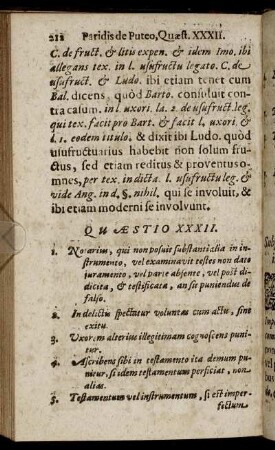 212 Paridis de Puteo, Quæst. XXXII.
C. de fruct. & litis expen. & idem Imo. ibi
allegans tex. in l. usufructu legato. C. de
usufruct. & Ludo. ibi etiam tenet cum
Bal. dicens, quòd Barto. consuluit con-
tra casum. in l. uxori. la. 2. de usufruct. leg.
qui tex. facit pro Bart. & facit l. uxori. &
l. 1. eodem titulo. & dixit ibi Ludo. quòd
usufructuarius habebit non solum fru-
ctus, sed etiam reditus & proventus o-
mnes, per tex. in dicta. l. usufructu leg. &
vide Ang. in d. §. nihil. qui se involuit, &
ibi etiam moderni se involvunt.
QUÆSTIO XXXII.
1. Notarius, qui non posuit substantialia in in-
strumento, vel examinavit testes non dato
juramento, vel parte absente, vel post di-
dicita, & testificata, an sit puniendus de
falso.
2. In delictis spectetur voluntas cum actu, sine
exitu.
3. Uxorem alterius illegitimam cognoscens puni-
tur.
4. Ascribens sibi in testamento ita demum pu-
nitur, si idem testamentum perficiat, non
alias.
5. Testamentum vel instrumentum, si est imper-
fectum